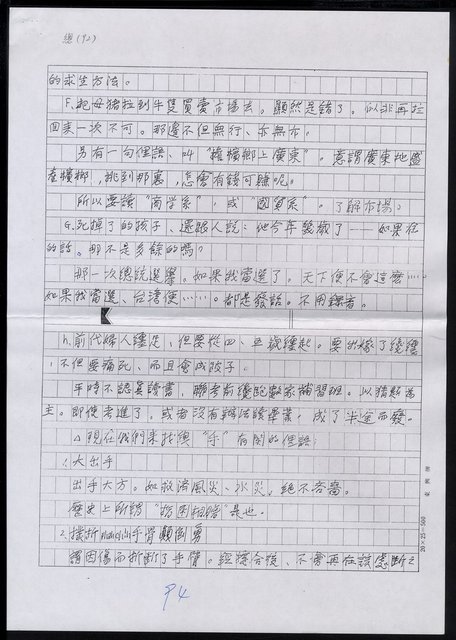 總(92)
的求生方法。
F.把母豬拉到牛隻買賣市場去。顯然是錯了。所以非再拉
回來一次不可。那邊不但無行、亦無市。
另有一句俚語、叫"擔檳榔上廣東"。意謂廣東地盛
產檳榔,挑到那裏,怎會有錢可賺呢。
所以要讀"商学系",或"國貿系"。了解市場。
G.死掉了的孩子、還跟人說:他今年幾歲了——如果在
的話。那不是多餘的嗎?
那一次總統選舉。如果我當選了。天下便不會這麼……
如果我當選、台灣便……。都是發話。不用錢者。
h.前代婦人纏足、但要從四、五歲纏起。要出嫁了纔纏
,不但要痛死、而且會成跛子。
平時不認真讀書,聯考前纔跑數家補習班。以猜點為
主。即使考進了,或者沒有辦法讀畢業,成了半途而發。
△現在我們來找與"手"有關的俚語:
1.大出手
出手大方。如救濟風災、水災,絕不吝嗇。
歷史上所謂"指囷相贈"是也.
2.撞折 手骨顛倒勇
謂因傷而折斷了手臂。經接合後、不會再在該處斷之
20×25=500
94